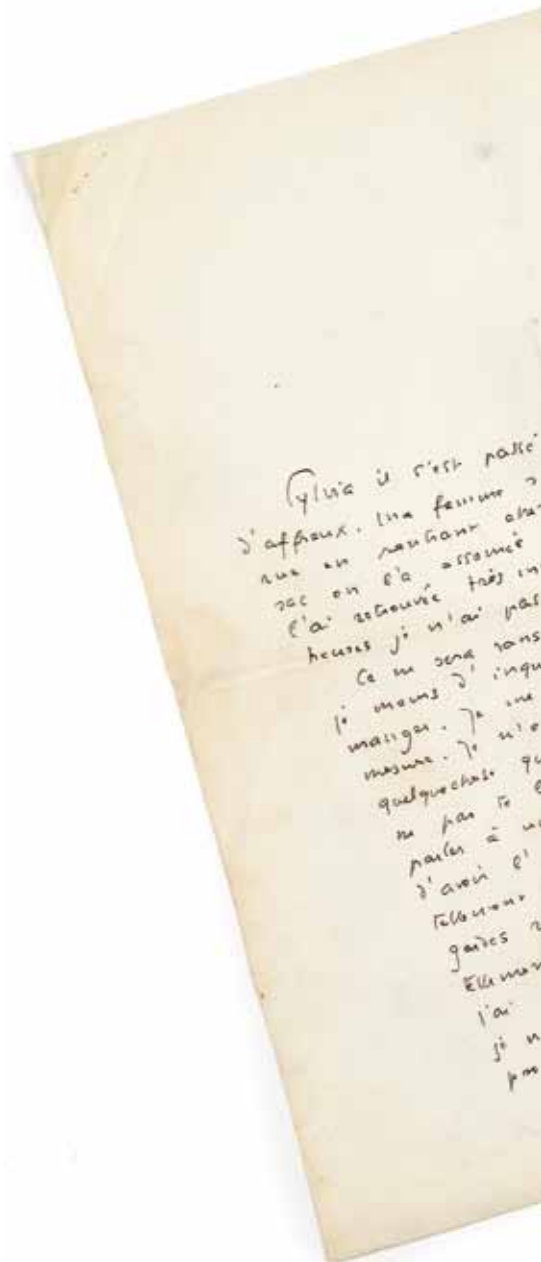 Sylvia il s'est passé
d'affreux. Une femme
rue en rentrant
sac on l'a assomée
l'ai retrouvée très
heures je n'ai pas
Ce me sera sans
je meurs d'inqu
manger. Je me
mesure. Je n'o
quelquechose qu
ne pas te
parler à
d'avoir l'
Tellement
gardes
j'ai
je n